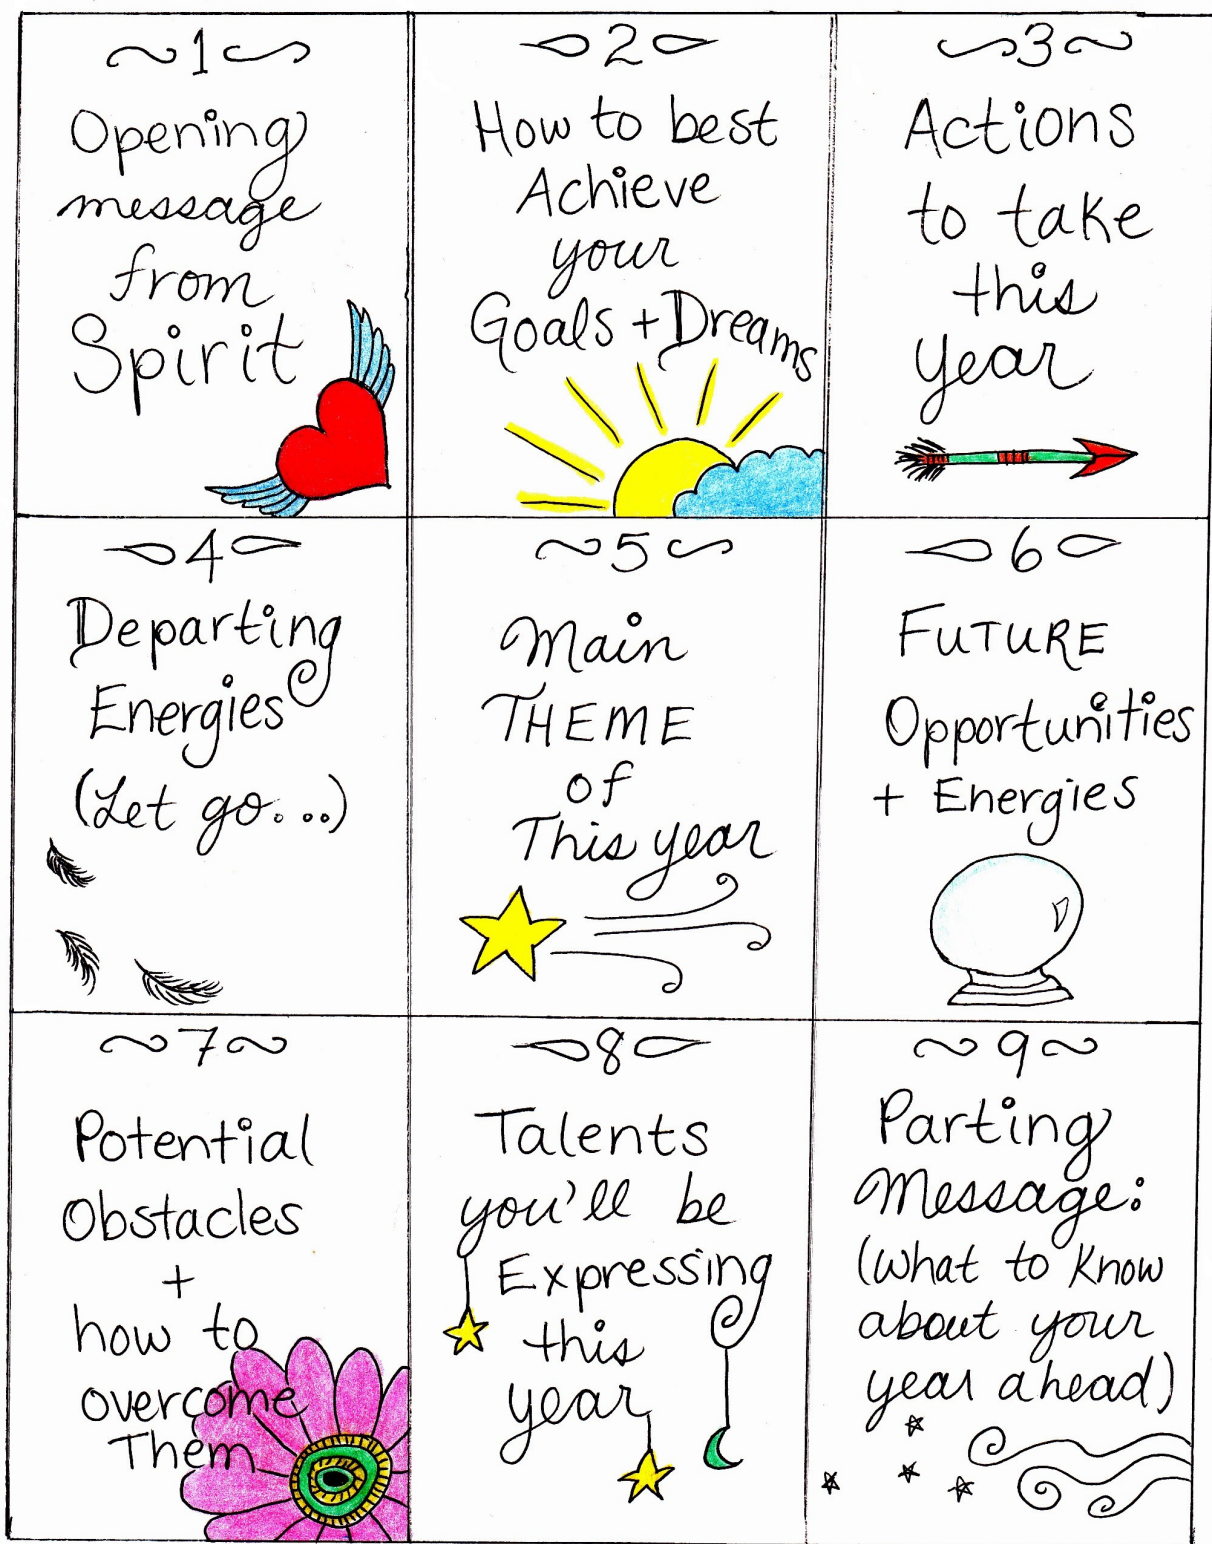 1
Opening
message
from
Spirit
2
How to best
Achieve
your
Goals + Dreams
3
Actions
to take
this
year
4
Departing
Energies
(Let go...)
5
Main
THEME
of
This year
6
FUTURE
Opportunities
+ Energies
7
Potential
Obstacles
+
how to
overcome
Them
8
Talents
you'll be
Expressing
this
year
9
Parting
Message:
(what to know
about your
year ahead)